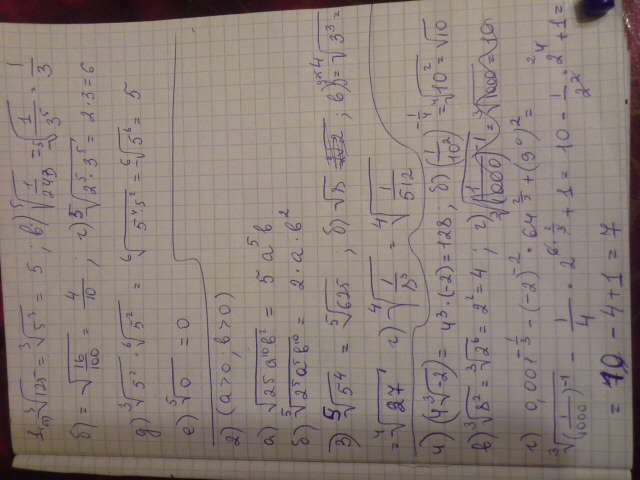 1. а) ∛125 = ∛5³ = 5 ; в) ⁵√(1/243) = ⁵√(1/3⁵) = 1/3
б) = √(16/100) = 4/10 ; г) ⁵√(2⁵·3⁵) = 2·3=6
д) ∛5² · ⁶√5² = ⁶√(5⁴·5²) = ⁶√5⁶ = 5
е) ⁵√0 = 0
2) (a>0, b>0)
а) √(25a¹⁰b²) = 5a⁵b
б) ⁵√(2⁵a⁵b¹⁰) = 2·a·b²
3) ⁵√5⁴ = ⁵√625 ; б) √8
= ⁴√27 г) ⁴√(1/8³) = ⁴√(1/512)
4) (4∛-2)³ = 4³·(-2) = 128 ; б) (1/10²)^(-1/4) = ⁴√10² = √10
в) ∛8² = ∛2⁶ = 2² = 4 ; г)
г) 0,001^(-1/3) - (-2)⁻² · 64^(2/3) + (9⁰)² =
∛(1/1000)⁻¹ - 1/4 · 2^(6·2/3) + 1 = 10 - 1/2² · 2⁴ + 1 =
= 10 - 4+1 = 7